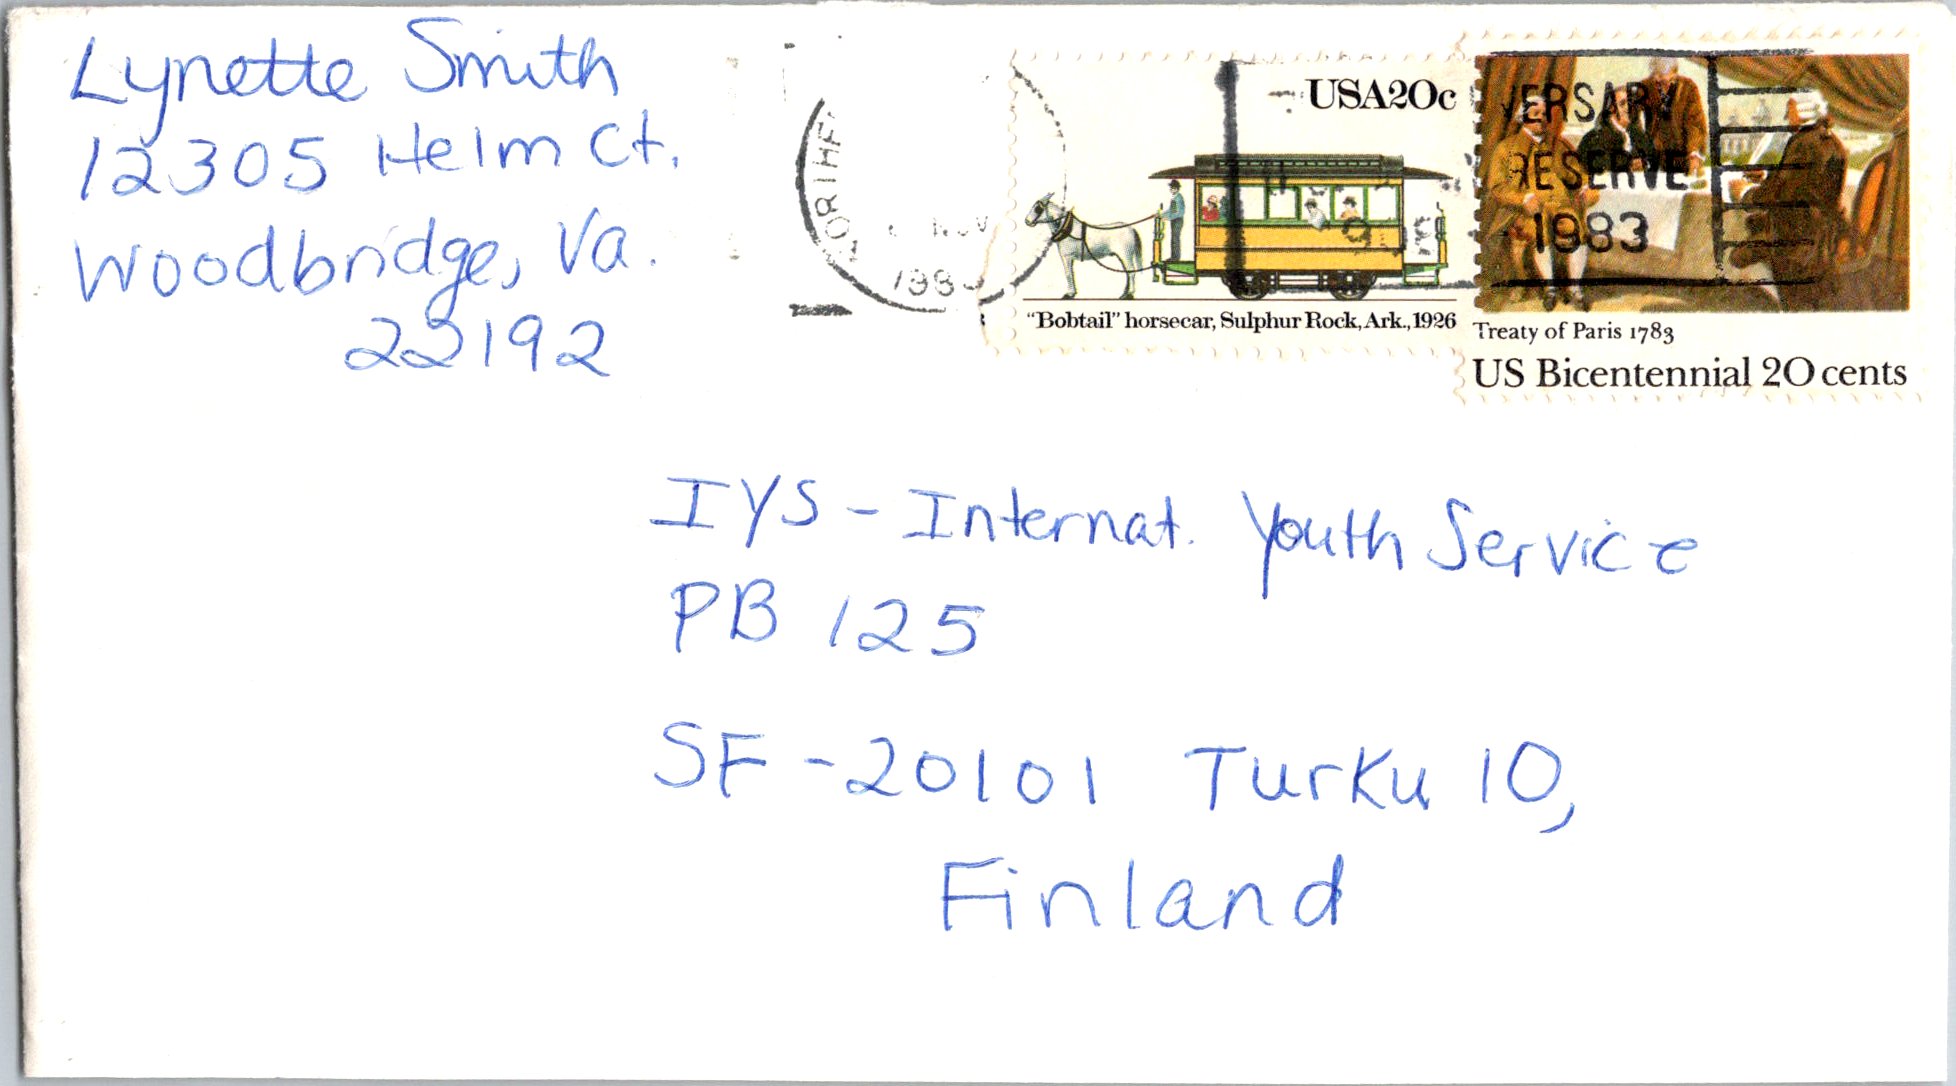 Lynette Smith
12305 Helm Ct.
Woodbridge, Va.
22192
NOV
1983
USA20c
"Bobtail" horsecar, Sulphur Rock, Ark., 1926
VERSARY
RESERVE
1983
Treaty of Paris 1783
US Bicentennial 20 cents
IYS - Internat. Youth Service
PB 125
SF - 20101 Turku 10,
Finland